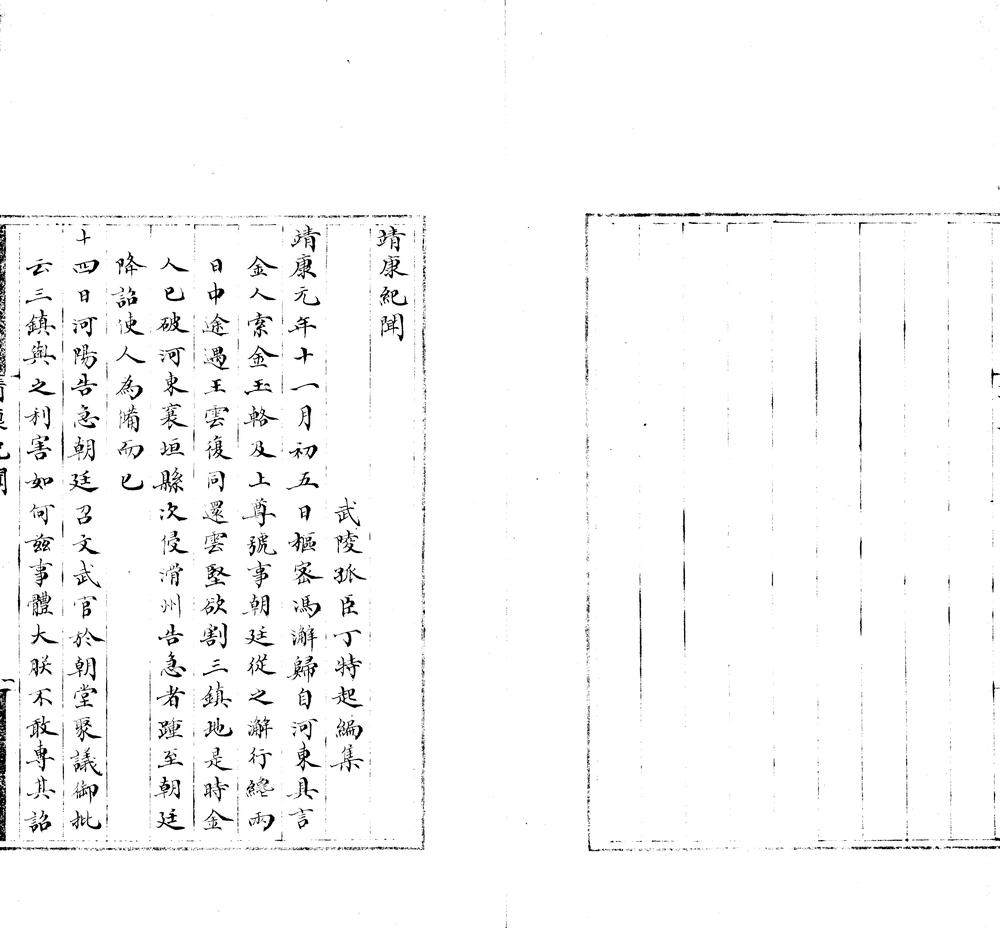 靖康紀聞
武陵孤臣丁特起編集
靖康元年十一月初五日樞密馮澥歸自河東具言
金人索金玉輅及上尊號事朝廷從之澥行纔兩
日中途遇王雲復同還雲堅欲割三鎮地是時金
人已破河東襄垣縣次侵滑州告急者踵至朝廷
降詔使人為備而已
十四日河陽告急朝廷召文武官於朝堂聚議御批
云三鎮與之利害如何兹事體大朕不敢專其詔
靖康紀聞
一